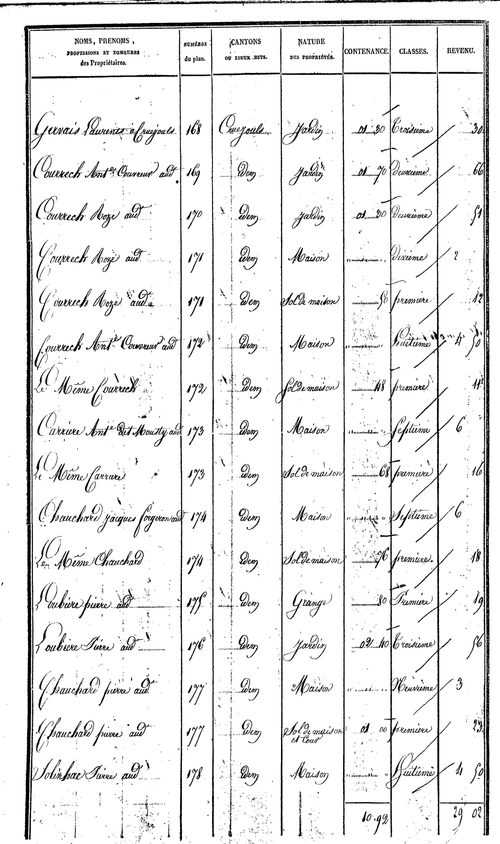 NOMS, PRENOMS, PROFESSIONS ET DEMEURES des Propriétaires. NUMÉROS du plan. CANTONS OU LIEUX DITS. NATURE DES PROPRIÉTÉS. CONTENANCE. CLASSES. REVENU.
Gervais Laurens a Cruejouls 168 Cruejouls Jardin 01 20 Troisieme 30
Courrech Ant.e Couvreur aud.t 169 idem Jardin 01 70 deuxieme 66
Courrech Roze aud.t 170 idem Jardin 01 30 deuxieme 51
Courrech Roze aud.t 171 idem Maison dixieme 2
Courrech Roze aud.t 171 idem Sol de maison 50 premiere 12
Courrech Ant.e Couvreur aud.t 172 idem Maison huitieme 4 50
Le Même Courrech 172 idem Sol de maison 48 premiere 11
Carriere Ant.e dit Mousty aud.t 173 idem Maison Septieme 6
Le Même Carriere 173 idem Sol de maison 68 premiere 16
Chauchard Jacques forgeron aud.t 174 idem Maison Septieme 6
Le Même Chauchard 174 idem Sol de maison 76 premiere 18
Loubiere pierre aud.t 175 idem Grange 80 Premiere 19
Loubiere Pierre aud.t 176 idem Jardin 02 40 Troisieme 56
Chauchard pierre aud.t 177 idem Maison Neuvieme 3
Chauchard pierre aud.t 177 idem Sol de maison et Cour 01 00 premiere 23
Solinhac Pierre aud.t 178 idem Maison Huitieme 4 50
10.92 29 02